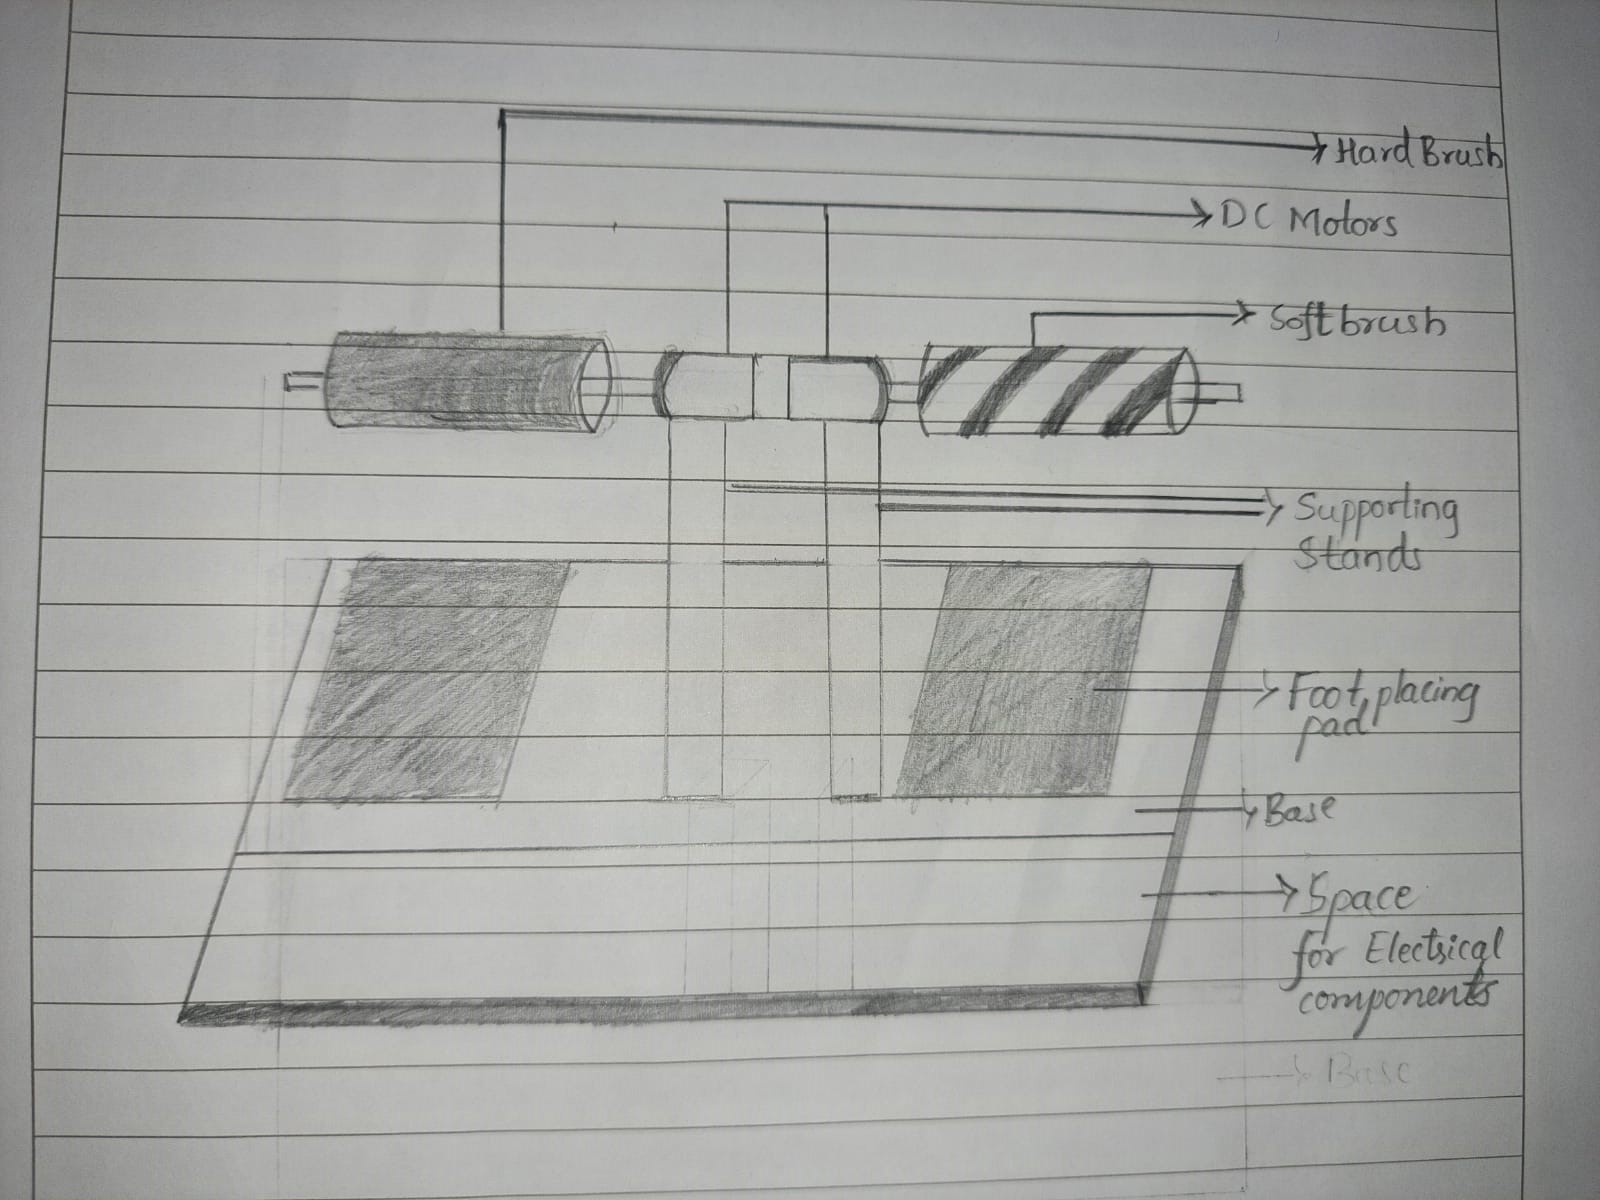 Hard Brush
DC Motors
Soft brush
Supporting
Stands
Foot placing
pad
Base
Space
for Electrical
components
Base